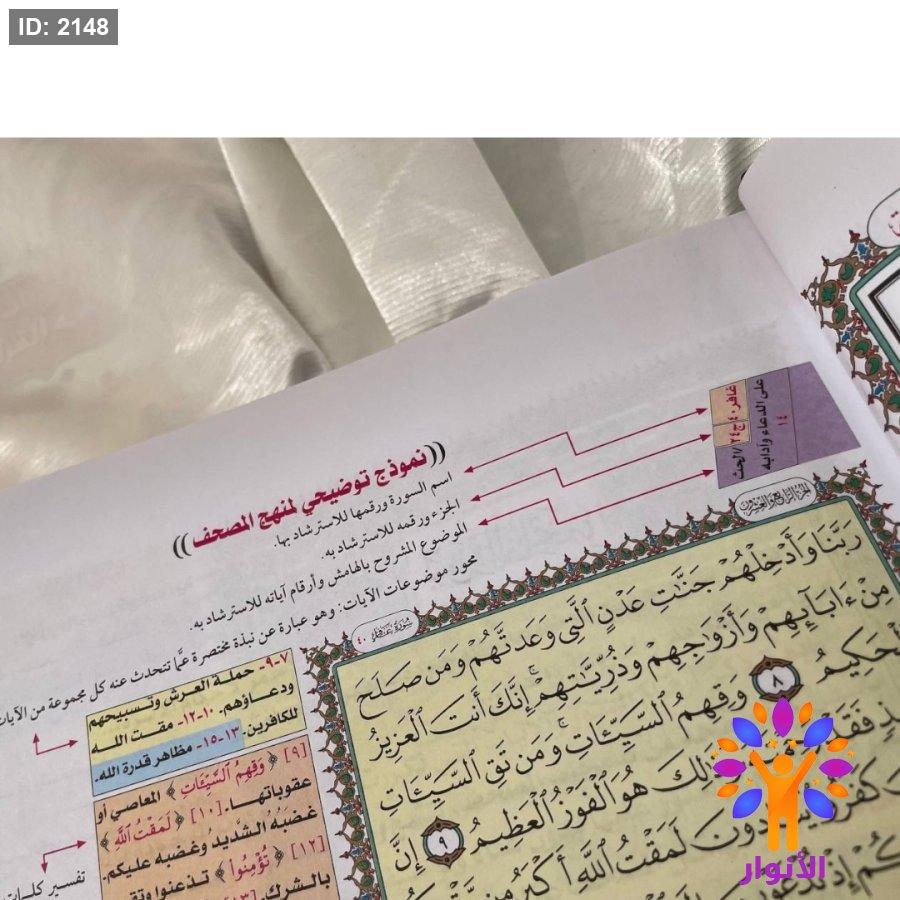 ID: 2148
غافر ٤٠
ج ٢٤
الحث
على الدعاء وآدابه
١٤
((نموذج توضيحي لمنهج المصحف))
اسم السورة ورقمها للاسترشاد بها.
الجزء ورقمه للاسترشاد به.
الموضوع المشروح بالهامش وأرقام آياته للاسترشاد به.
محور موضوعات الآيات: وهو عبارة عن نبذة مختصرة عمّا تتحدث عنه كل مجموعة من الآيات
الجزء الرابع والعشرون
سورة غافر ٤٠
رَبَّنَا وَأَدْخِلْهُمْ جَنَّٰتِ عَدْنٍ ٱلَّتِى وَعَدتَّهُمْ وَمَن صَلَحَ
مِنْ ءَابَآئِهِمْ وَأَزْوَٰجِهِمْ وَذُرِّيَّٰتِهِمْ ۚ إِنَّكَ أَنتَ ٱلْعَزِيزُ
ٱلْحَكِيمُ ٨ وَقِهِمُ ٱلسَّيِّـَٔاتِ ۚ وَمَن تَقِ ٱلسَّيِّـَٔاتِ
هُوَ ٱلْفَوْزُ ٱلْعَظِيمُ ٩ إِنَّ
لَمَقْتُ ٱللَّهِ أَكْبَرُ مِن
٧-٩- حملة العرش وتسبيحهم
ودعاؤهم. ١٠-١٢- مقت الله
للكافرين. ١٣-١٥- مظاهر قدرة الله.
[٩] ﴿ وَقِهِمُ ٱلسَّيِّـَٔاتِ ﴾ المعاصي أو
عقوباتها. [١٠] ﴿ لَمَقْتُ ٱللَّهِ ﴾
غضبه الشديد وغضبه عليكم.
[١٢] ﴿ تُؤْمِنُوا۟ ﴾ تذعنوا
بالشرك. [١٣]
تفسير كلمات
الأنوار